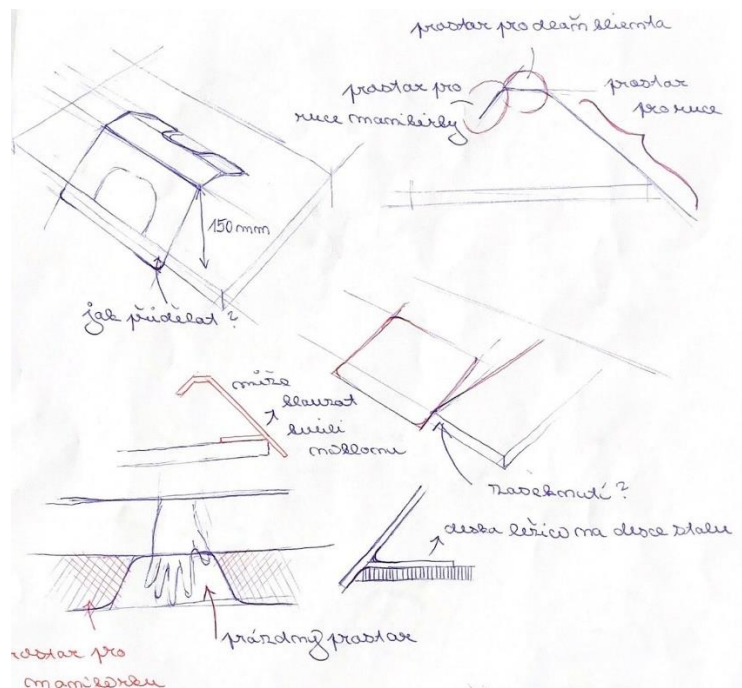 prostor pro dlaň klienta
prostor pro
ruce manikérky
prostor
pro ruce
150 mm
jak přidělat?
může
klouzat
kvůli
náklonu
zaseknutí?
deska ležící na desce stolu
prázdný prostor
rostor pro
manikérku